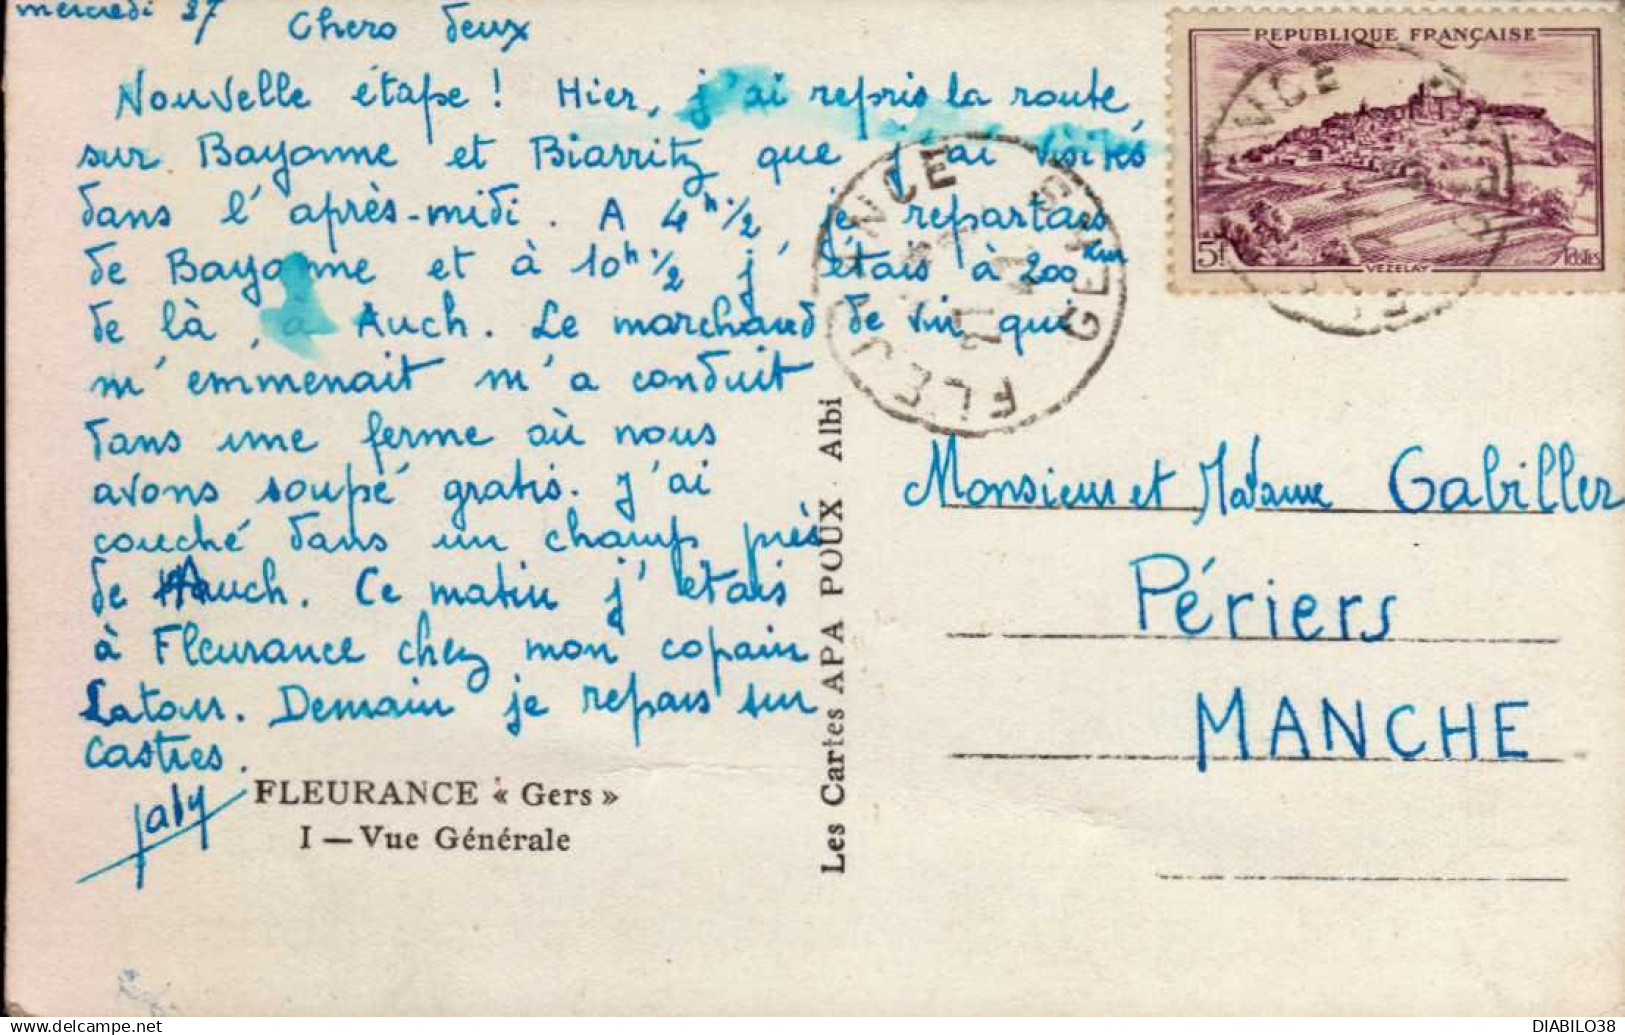 mercredi 27
Chers deux
Nouvelle étape ! Hier, j'ai repris la route
sur Bayonne et Biarritz que j'ai visités
dans l'après-midi. A 4h 1/2 je repartais
de Bayonne et à 10h 1/2 j'étais à 200 km
de là, à Auch. Le marchand de vin qui
m'emmenait m'a conduit
dans une ferme où nous
avons soupé gratis. J'ai
couché dans un champ près
de Auch. Ce matin j'étais
à Fleurance chez mon copain
Latour. Demain je repars sur
Castres.
Jaby
FLEURANCE « Gers »
I — Vue Générale
Les Cartes APA POUX - Albi
REPUBLIQUE FRANÇAISE
5f
VEZELAY
FLEURANCE
GERS
Monsieur et Madame Gabiller
Périers
MANCHE
DIABILO38